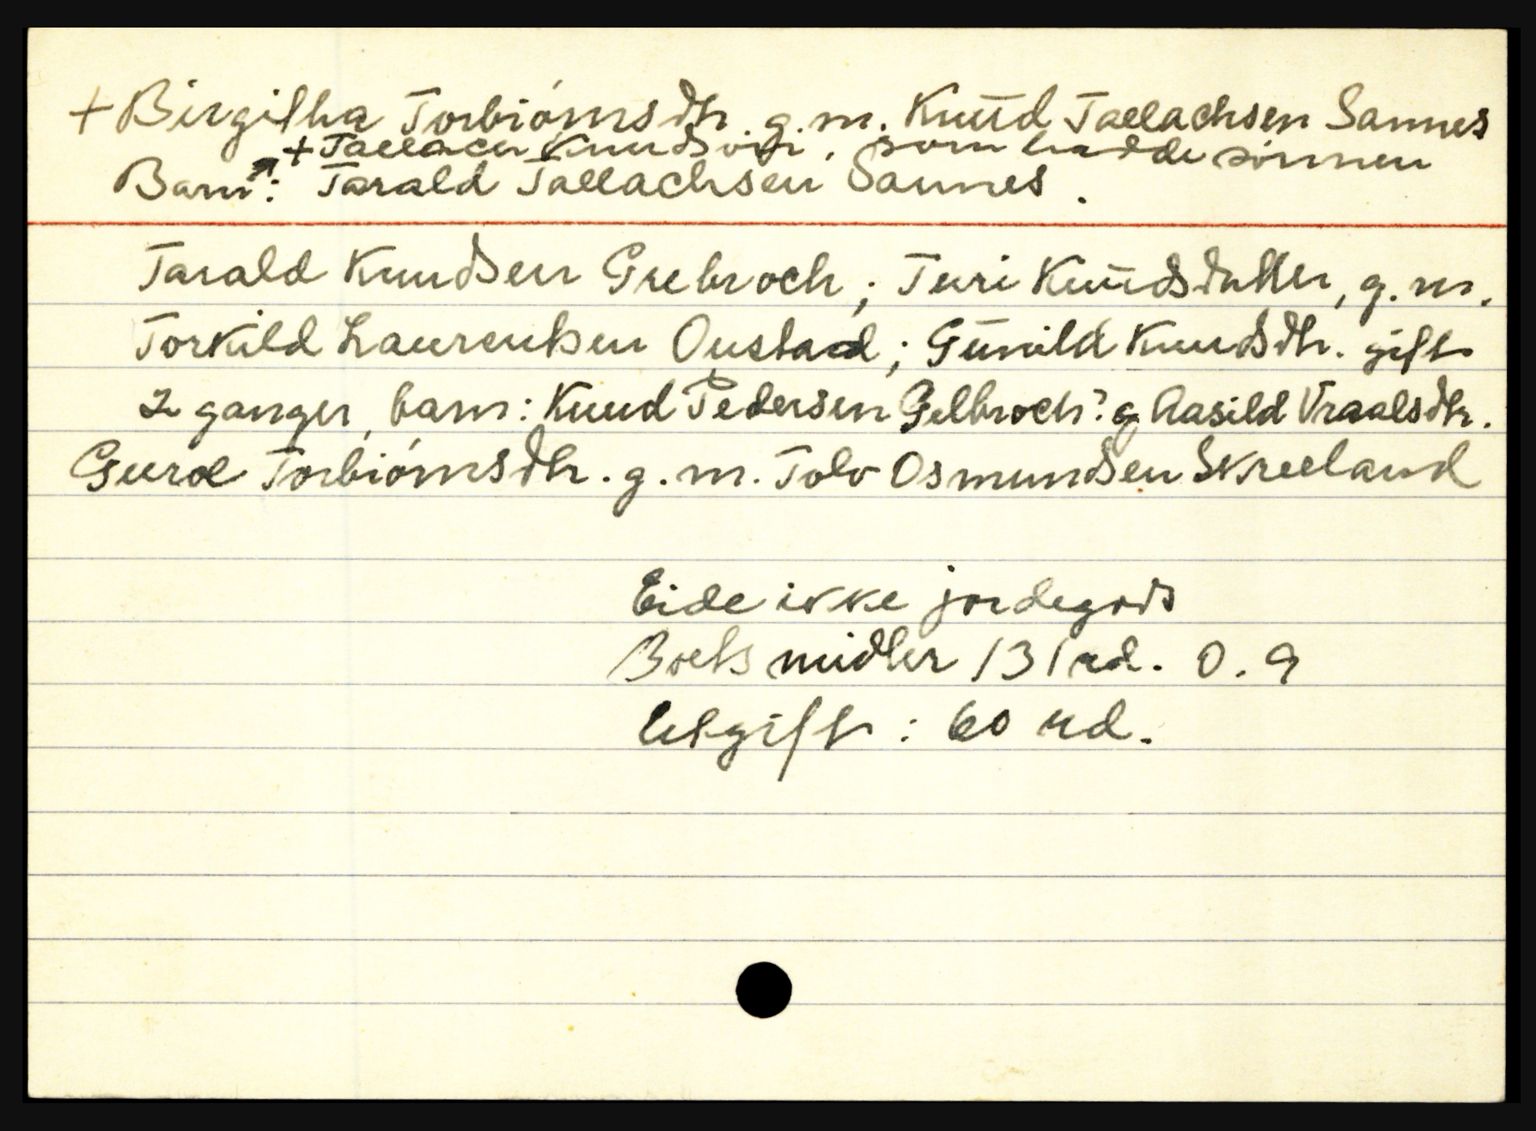 + Birgitha Torbiörnsdtr. g.m. Knud Tallachsen Sannes
+ Tallach Knudsön, som hadde sönnen
Barn: Tarald Tallachsen Sannes.
Tarald Knudsen Grebroch; Turi Knudsdatter, g.m.
Torkild Laurentsen Oustad; Gunild Knudsdtr. gift
2 ganger, barn: Knud Pedersen Gelbroch? g Aasild Vraalsdtr.
Guroe Torbiörnsdtr. g.m. Tolv Osmundsen Skreeland
Eide ikke jordegods
Boets midler 131 rd. 0. 9
Utgift: 60 rd.